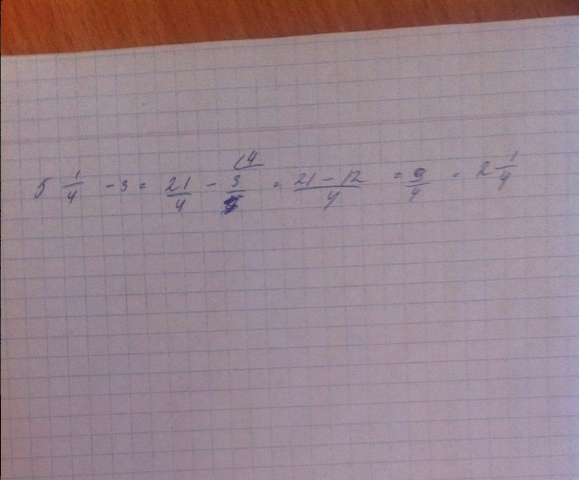 5 1/4 - 3 = 21/4 - 3/1 (4 = 21 - 12/4 = 9/4 = 2 1/4